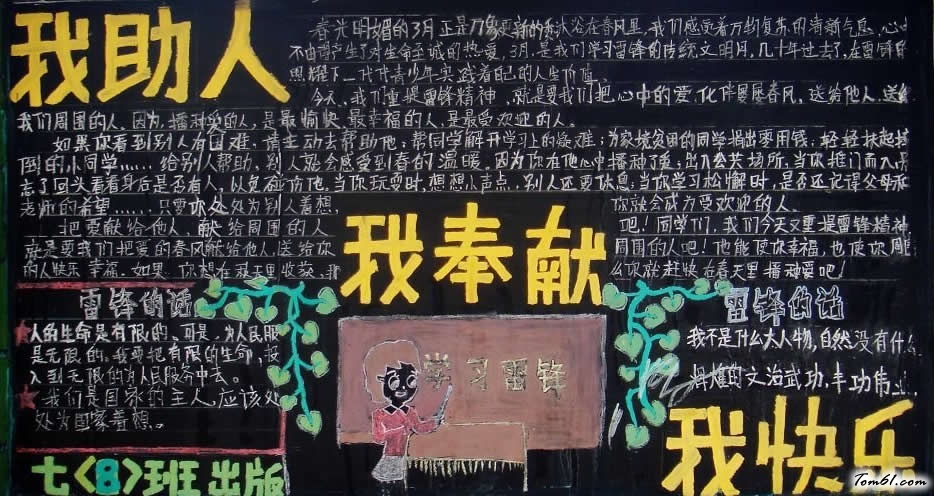 我助人
春光明媚的3月正是万象更新的季节，沐浴在春风里，我们感受着万物复苏的清新气息，心
不由得产生了对生命至诚的热爱。3月，是我们学习雷锋的传统文明月，几十年过去了，在雷锋的
照耀下一代代青少年实践着自己的人生价值。
今天，我们重提雷锋精神，就是要我们把心中的爱，化作屡屡春风，送给他人，送给
我们周围的人。因为，播种爱的人，是最愉快、最幸福的人，是最受欢迎的人。
如果你看到别人有困难，请主动去帮助他；帮同学解开学习上的疑难；为家境贫困的同学捐出零用钱；轻轻扶起摔
倒的小同学……给别人帮助，别人就会感受到春的温暖。因为你在他心中播种了爱；出入公共场所，当你推门而入，别
忘了回头看看身后是否有人，以免碰伤他。当你玩耍时，想想小声点，别人还要休息；当你学习松懈时，是否还记得父母和
老师的希望……只要你处处为别人着想，
你就会成为受欢迎的人。
把爱献给他人，献给周围的人
吧！同学们，我们今天又重提雷锋精神
就是要我们把爱的春风献给他人，送给你
周围的人吧！也能使你幸福，也使你周
的人快乐幸福。如果，你想在春天里收获，
么你就赶快在春天里播种爱吧！
我奉献
雷锋的话
人的生命是有限的。可是，为人民服
是无限的。我要把有限的生命，投
入到无限的为人民服务中去。
我们是国家的主人，应该处
处为国家着想。
学习雷锋
雷锋的话
我不是什么大人物，自然没有什么
辉煌的文治武功，丰功伟
我快乐
七〈8〉班出版
Tom61.com